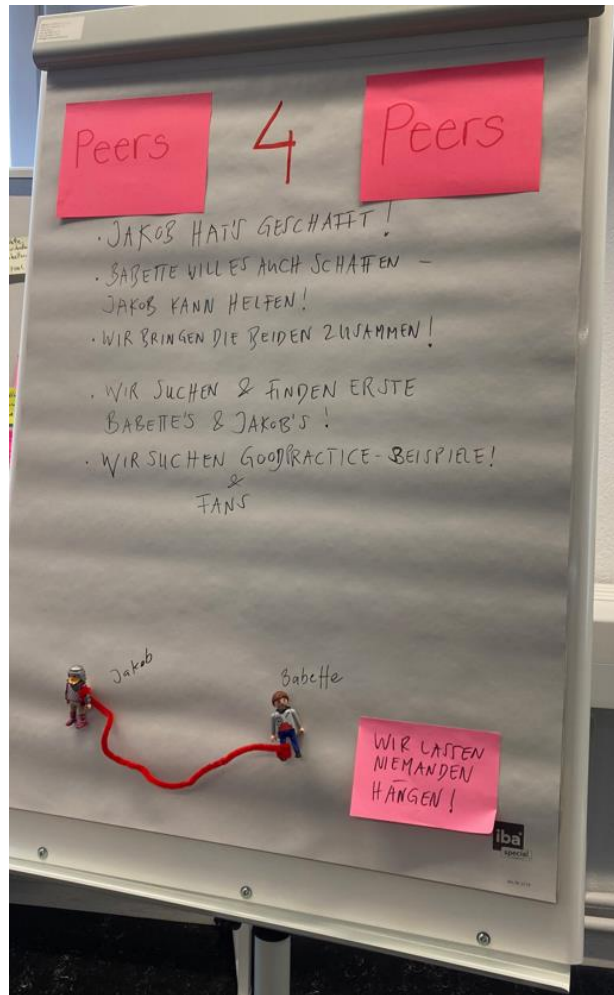 Peers 4 Peers
· JAKOB HAT'S GESCHAFFT!
· BABETTE WILL ES AUCH SCHAFFEN –
JAKOB KANN HELFEN!
· WIR BRINGEN DIE BEIDEN ZUSAMMEN!
· WIR SUCHEN & FINDEN ERSTE
BABETTE'S & JAKOB'S!
· WIR SUCHEN GOODPRACTICE-BEISPIELE!
&
FANS
Jakob
Babette
WIR LASSEN
NIEMANDEN
HÄNGEN!
iba
special